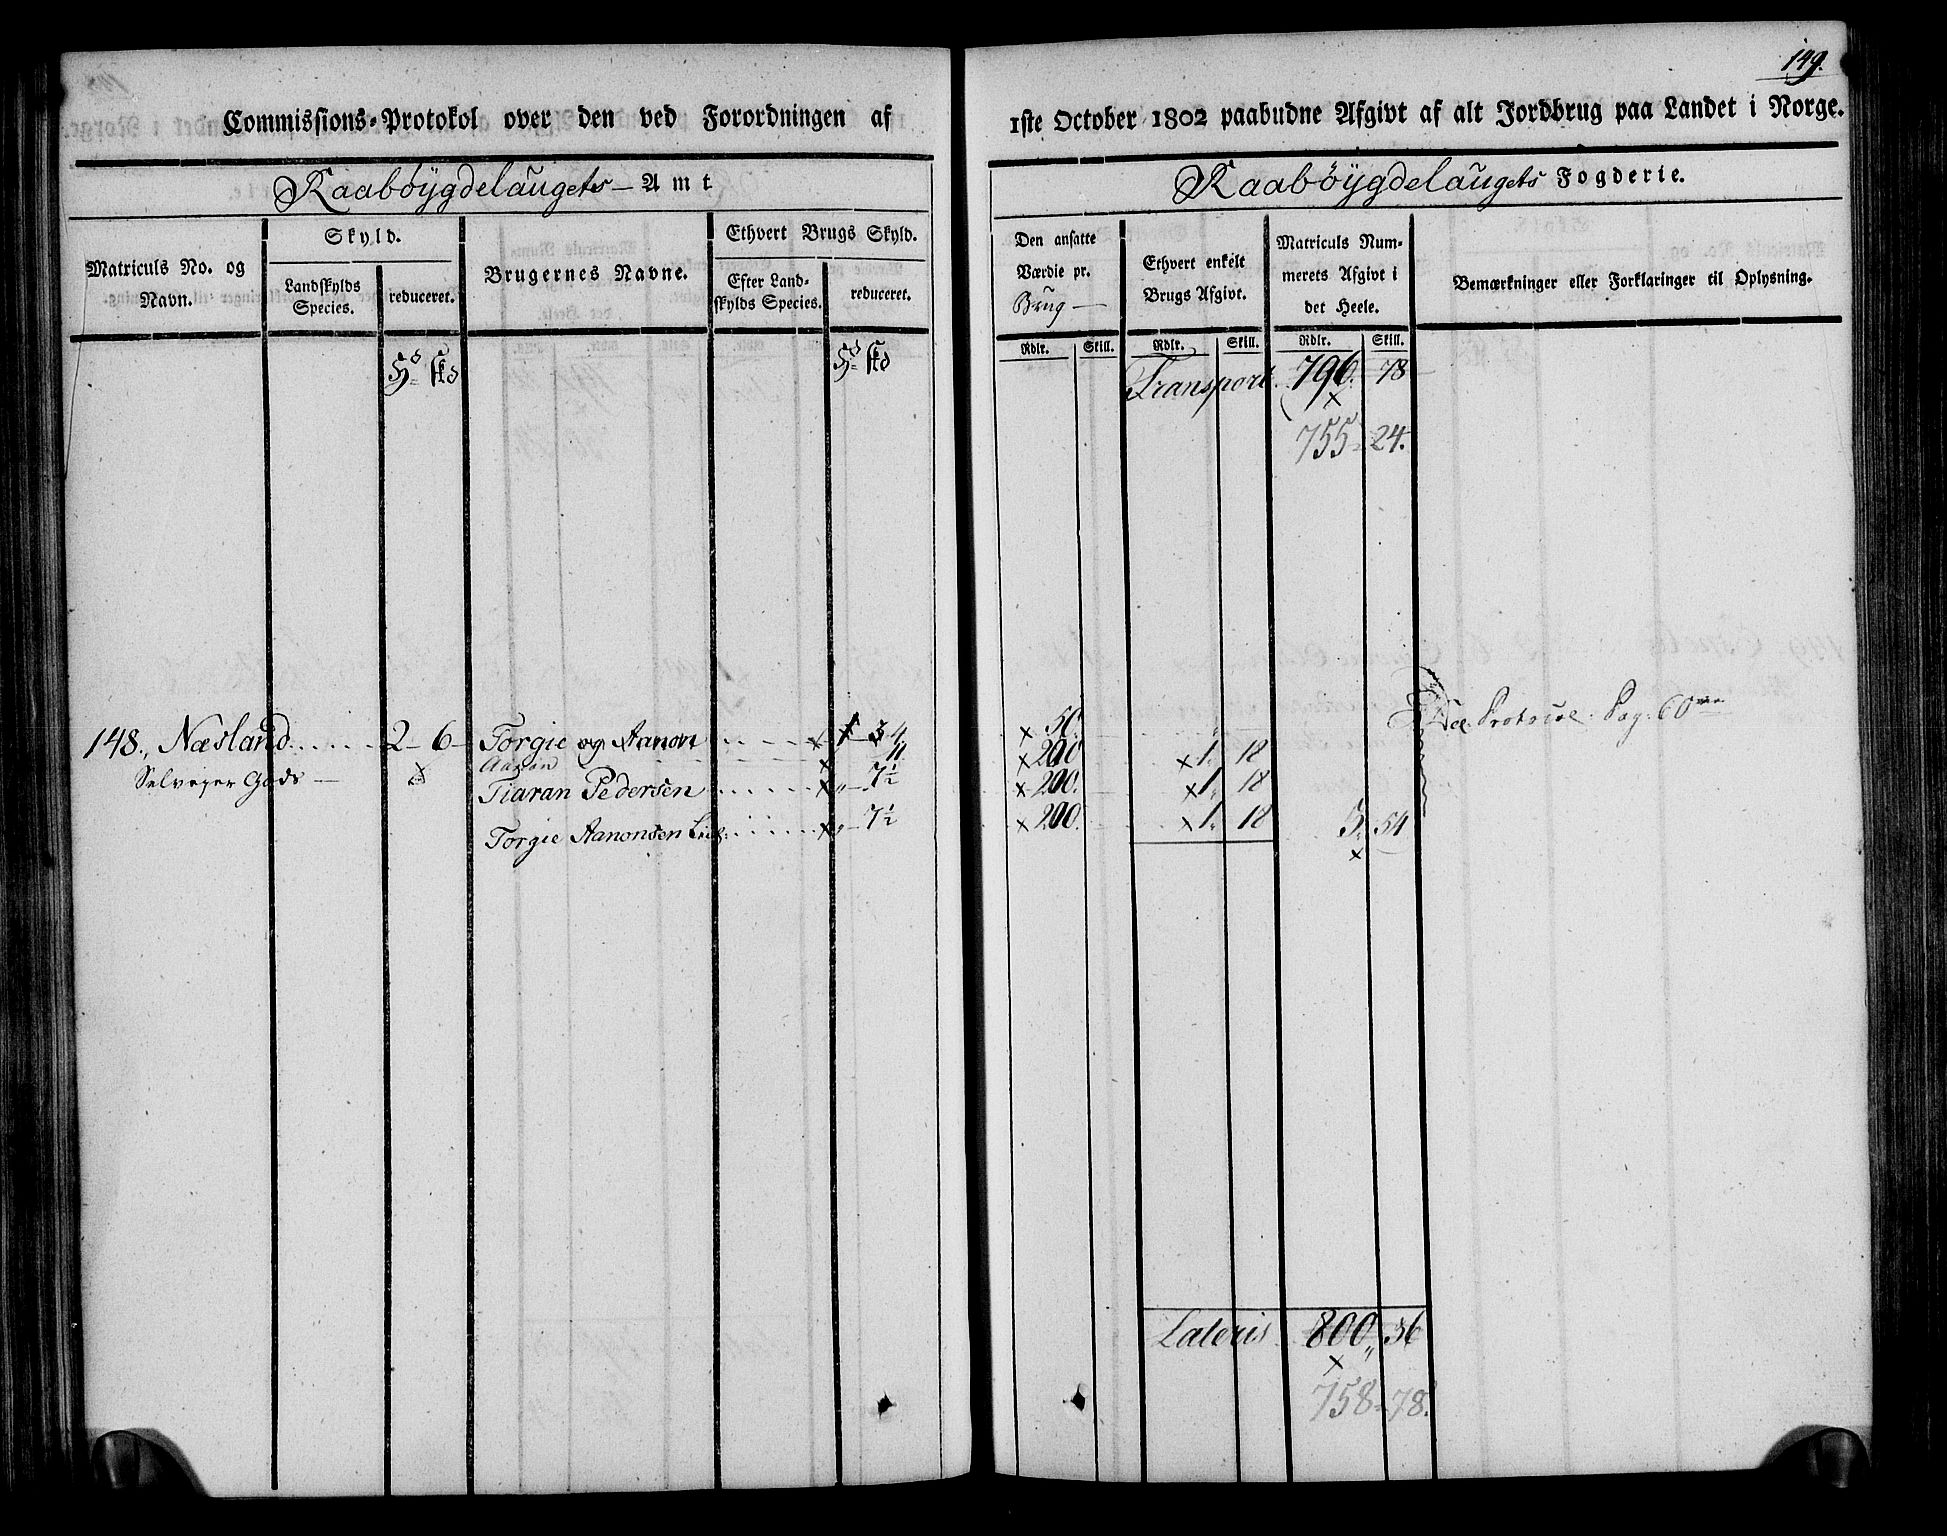 149.
Commissions-Protokol over den ved Forordningen af 1ste October 1802 paabudne Afgivt af alt Jordbrug paa Landet i Norge.
Raabøygdelaugets Amt
Raabøygdelaugets Fogderie.
Matriculs No. og Navn.
Skyld.
Landskylds Species.
reduceret.
Brugernes Navne.
Ethvert Brugs Skyld.
Efter Landskylds Species.
reduceret.
Den ansatte Værdie pr. Brug
Ethvert enkelt Brugs Afgivt.
Matriculs Nummerets Afgivt i det Heele.
Bemærkninger eller Forklaringer til Oplysning.
Rdlr. Skill. Rdlr. Skill. Rdlr. Skill.
Transport. 796. 78
755 24.
148., Næsland 2 - 6 - Torgie og Aanon 50. See Protocol Pag: 60
Selveyer Gods Aanon 11 200 1. 18
Tiaran Pedersen 7½ 200. 1. 18
Torgie Aanonsen 7½ 200. 1. 18 3. 54
Lateris 800 36
758 78.